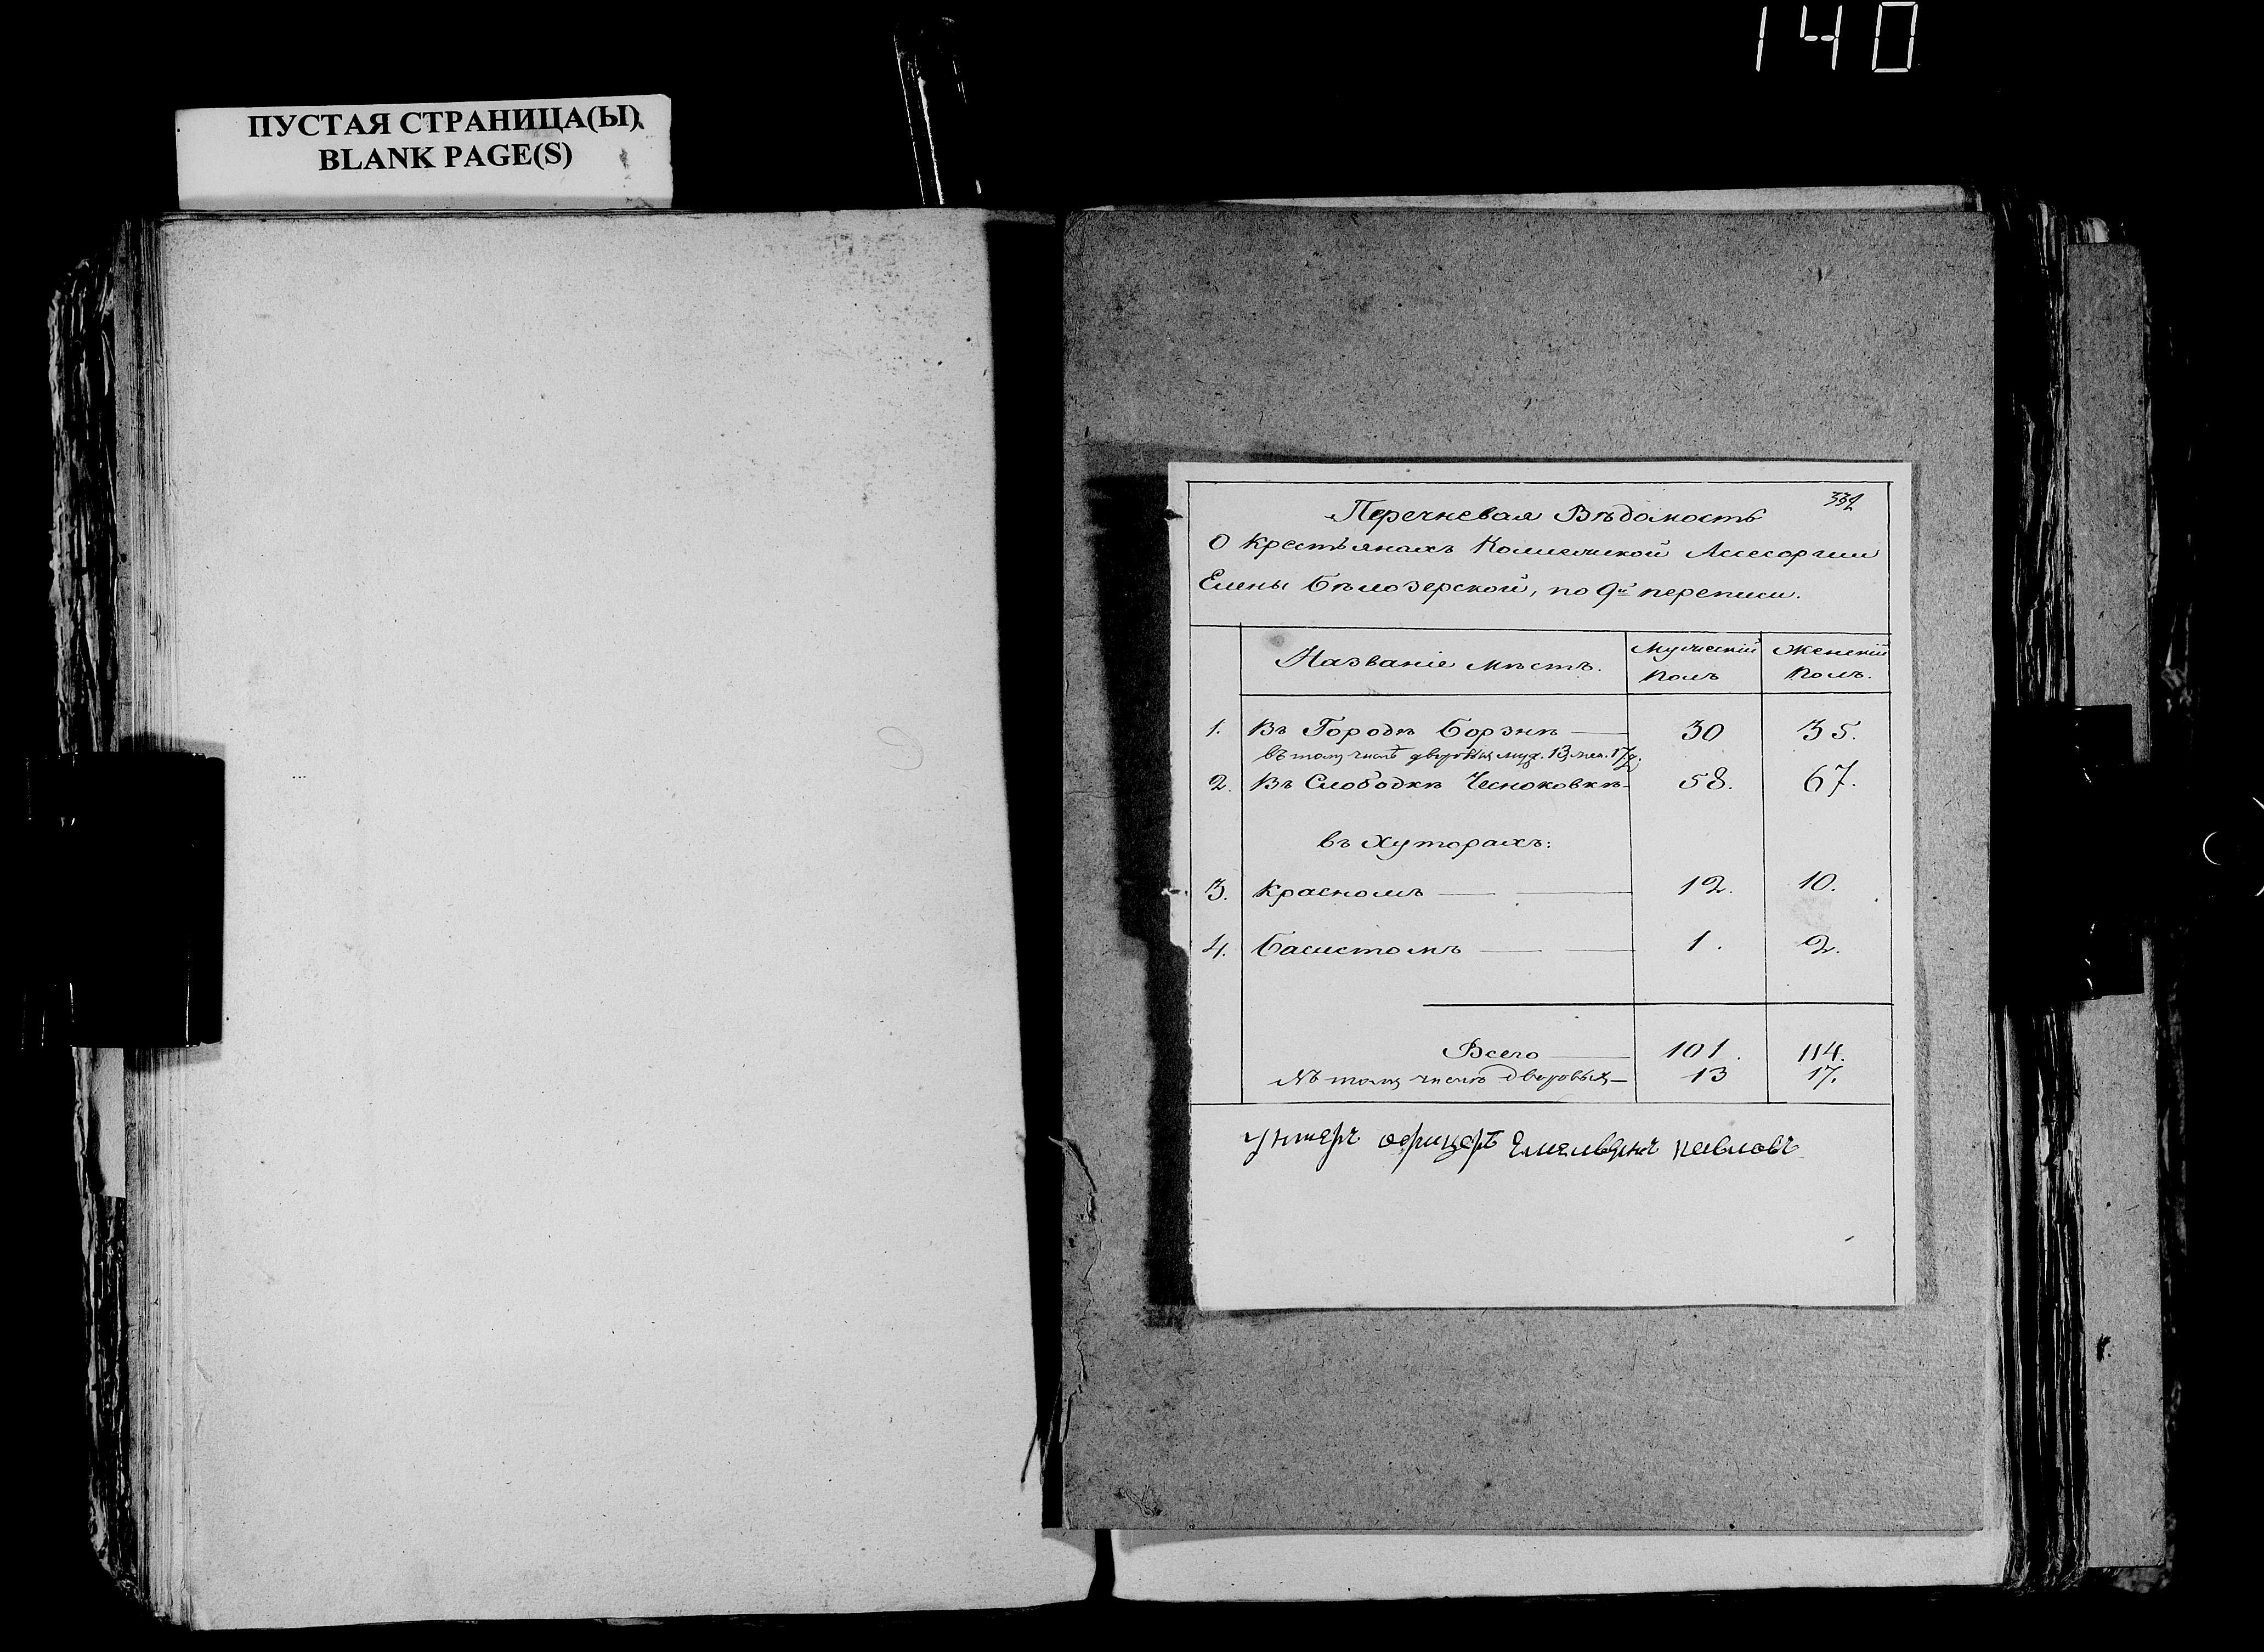 140
ПУСТАЯ СТРАНИЦА(Ы)
BLANK PAGE(S)
Перечневая Вѣдомость
О Крестьянахъ Коллежской Ассесорши
Елены Бѣлозерской, по 9й переписи.
Названіе мѣстъ. Мужескій Полъ Женскій Полъ.
1. Въ Городѣ Борзнѣ 30 35.
въ томъ числѣ дворовыхъ муж. 13 жен. 17
2. Въ Слободкѣ Чесноковкѣ 58. 67.
въ Хуторахъ:
3. Красномъ 12. 10.
4. Басистомъ 1. 2.
Всего 101. 114.
въ томъ числѣ дворовыхъ 13 17.
унтеръ офицеръ Емельянъ павловъ